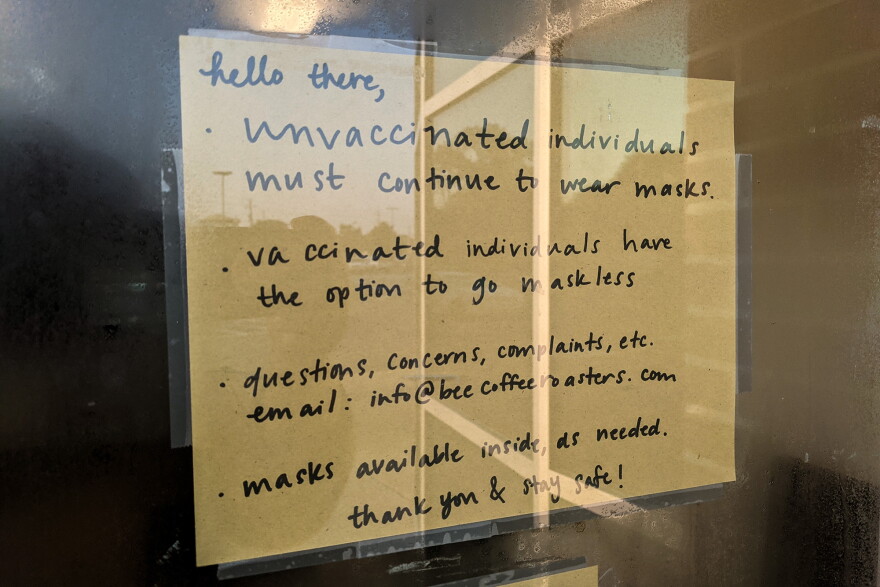 hello there,
• unvaccinated individuals
must continue to wear masks.
• vaccinated individuals have
the option to go maskless
• questions, concerns, complaints, etc.
email: info@beecoffeeroasters.com
• masks available inside, as needed.
thank you & stay safe!